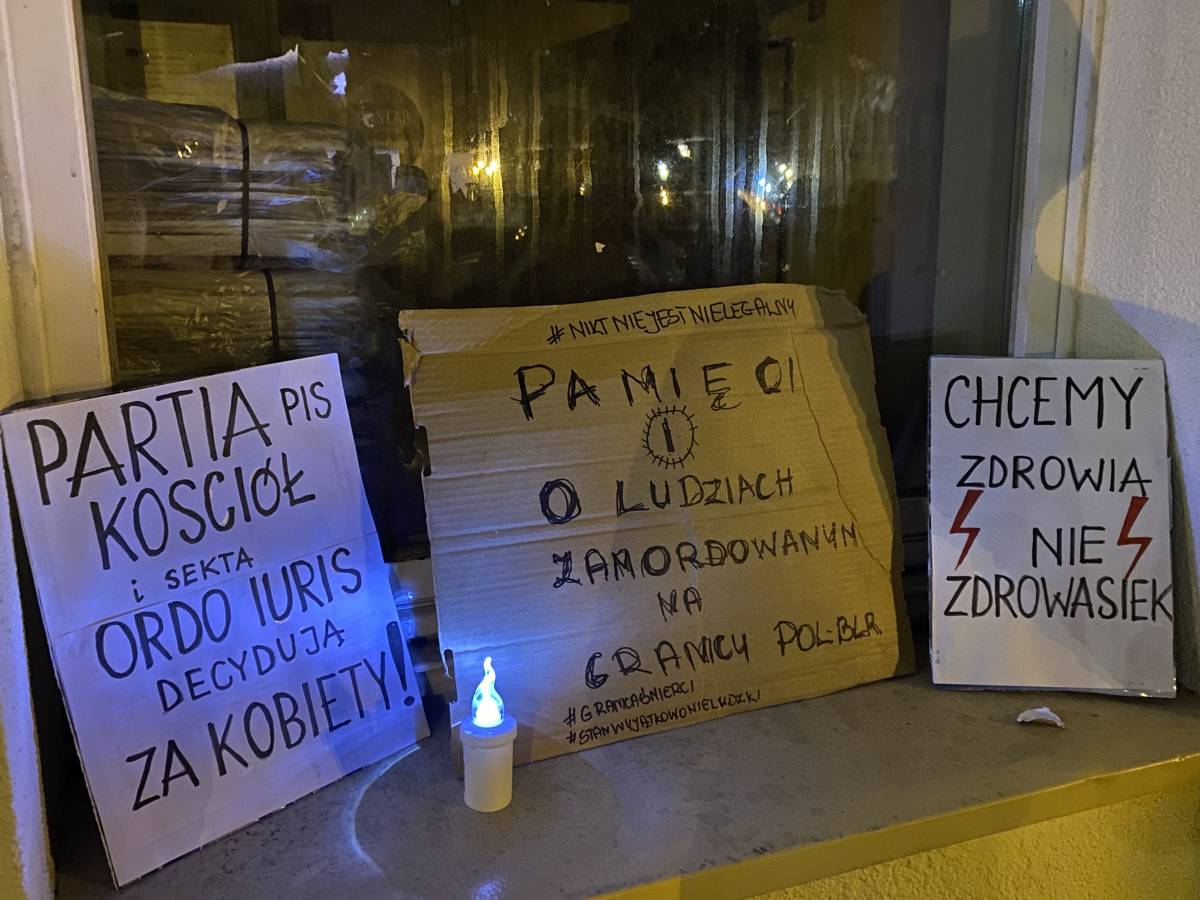 PARTIA PIS
KOSCIÓŁ
i SEKTA
ORDO IURIS
DECYDUJĄ
ZA KOBIETY!
#NIKTNIEJESTNIELEGALNY
PAMIĘCI
O LUDZIACH
ZAMORDOWANYM
NA
GRANICY POL-BLR
#GRANICAŚMIERCI
#STANWYJĄTKOWONIELUDZKI
CHCEMY
ZDROWIA
NIE
ZDROWASIEK